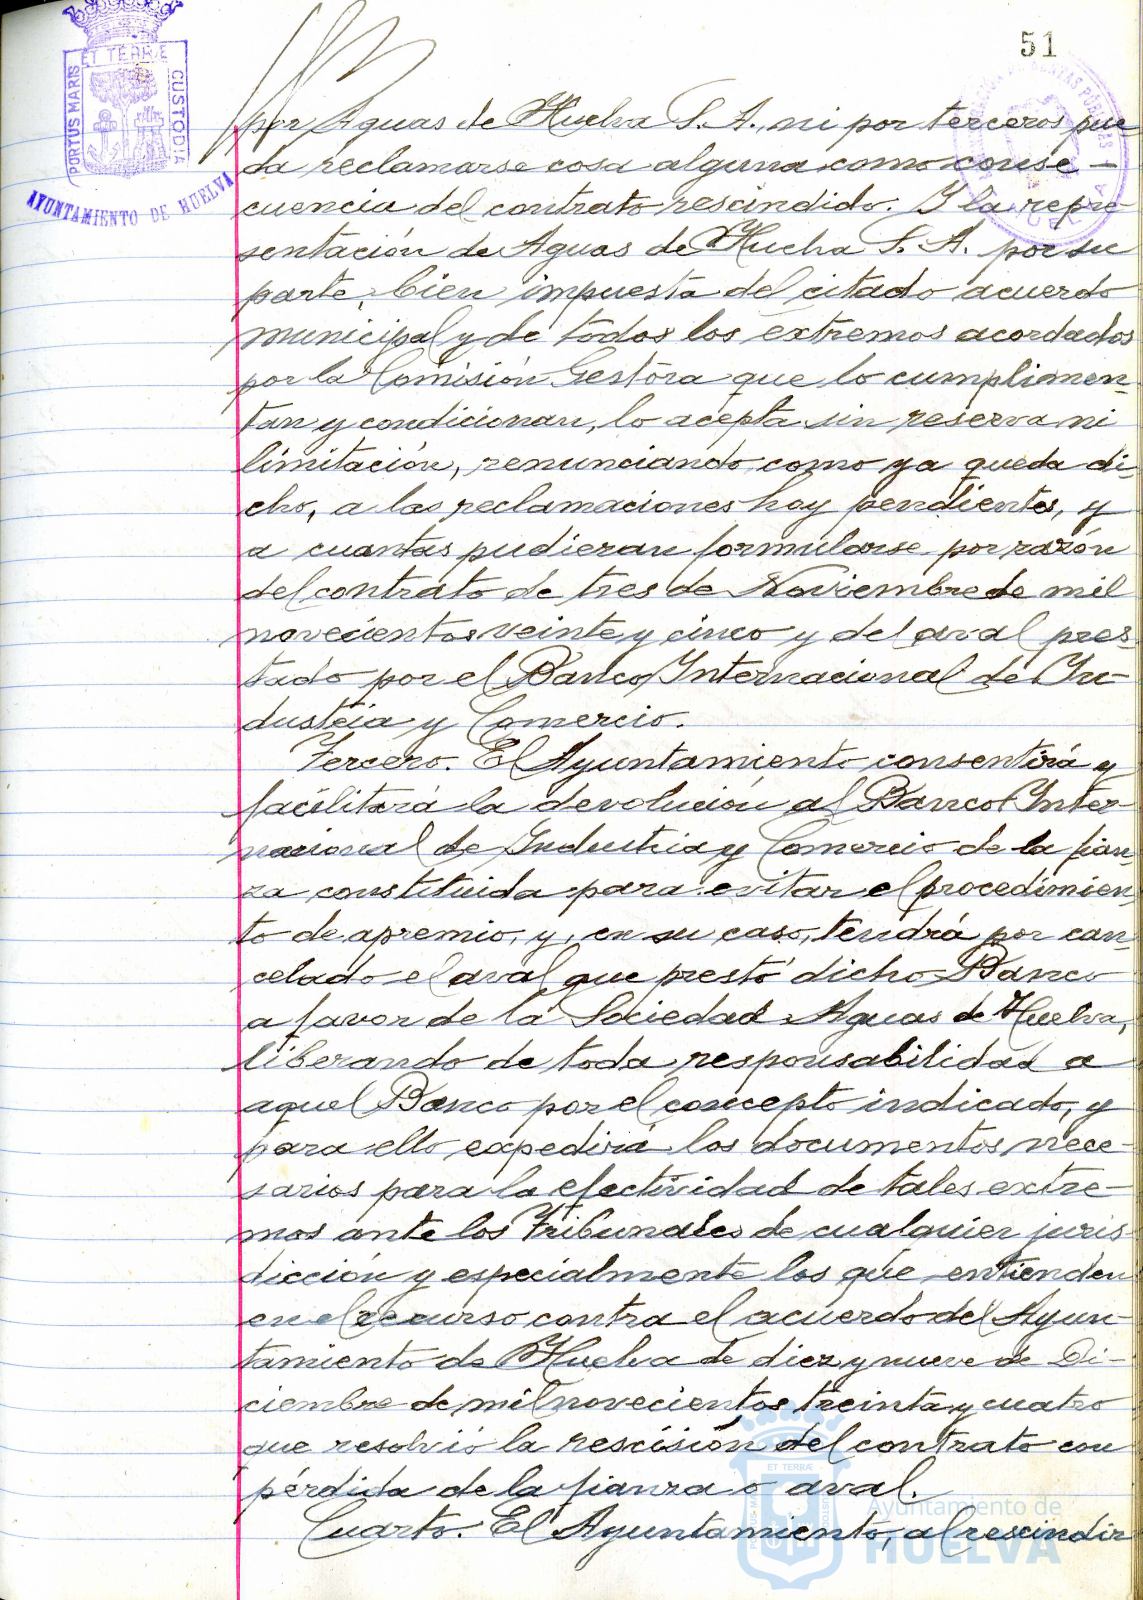 51
ET TERRÆ
PORTUS MARIS
CUSTODIA
AYUNTAMIENTO DE HUELVA
por Aguas de Huelva S. A., ni por terceros pue-
da reclamarse cosa alguna como conse-
cuencia del contrato rescindido. Y la repre-
sentación de Aguas de Huelva S. A. por su
parte, bien impuesta del citado acuerdo
municipal y de todos los extremos acordados
por la Comisión Gestora que lo cumplimen-
tan y condicionan, lo acepta sin reserva ni
limitación, renunciando como ya queda di-
cho, a las reclamaciones hoy pendientes, y
a cuantas pudieran formularse por razón
del contrato de tres de Noviembre de mil
novecientos veinte y cinco y del aval pres-
tado por el Banco Internacional de In-
dustria y Comercio.
Tercero. El Ayuntamiento consentirá y
facilitará la devolución al Banco Inter-
nacional de Industria y Comercio de la fian-
za constituida para evitar el procedimien-
to de apremio, y, en su caso, tendrá por can-
celado el aval que prestó dicho Banco
a favor de la Sociedad Aguas de Huelva,
liberando de toda responsabilidad a
aquel Banco por el concepto indicado, y
para ello expedirá los documentos nece-
sarios para la efectividad de tales extre-
mos ante los Tribunales de cualquier juris-
dicción y especialmente los que entienden
en el recurso contra el acuerdo del Ayun-
tamiento de Huelva de diez y nueve de Di-
ciembre de mil novecientos treinta y cuatro
que resolvió la rescisión del contrato con
pérdida de la fianza o aval.
Cuarto. El Ayuntamiento, al rescindir
Ayuntamiento de
HUELVA